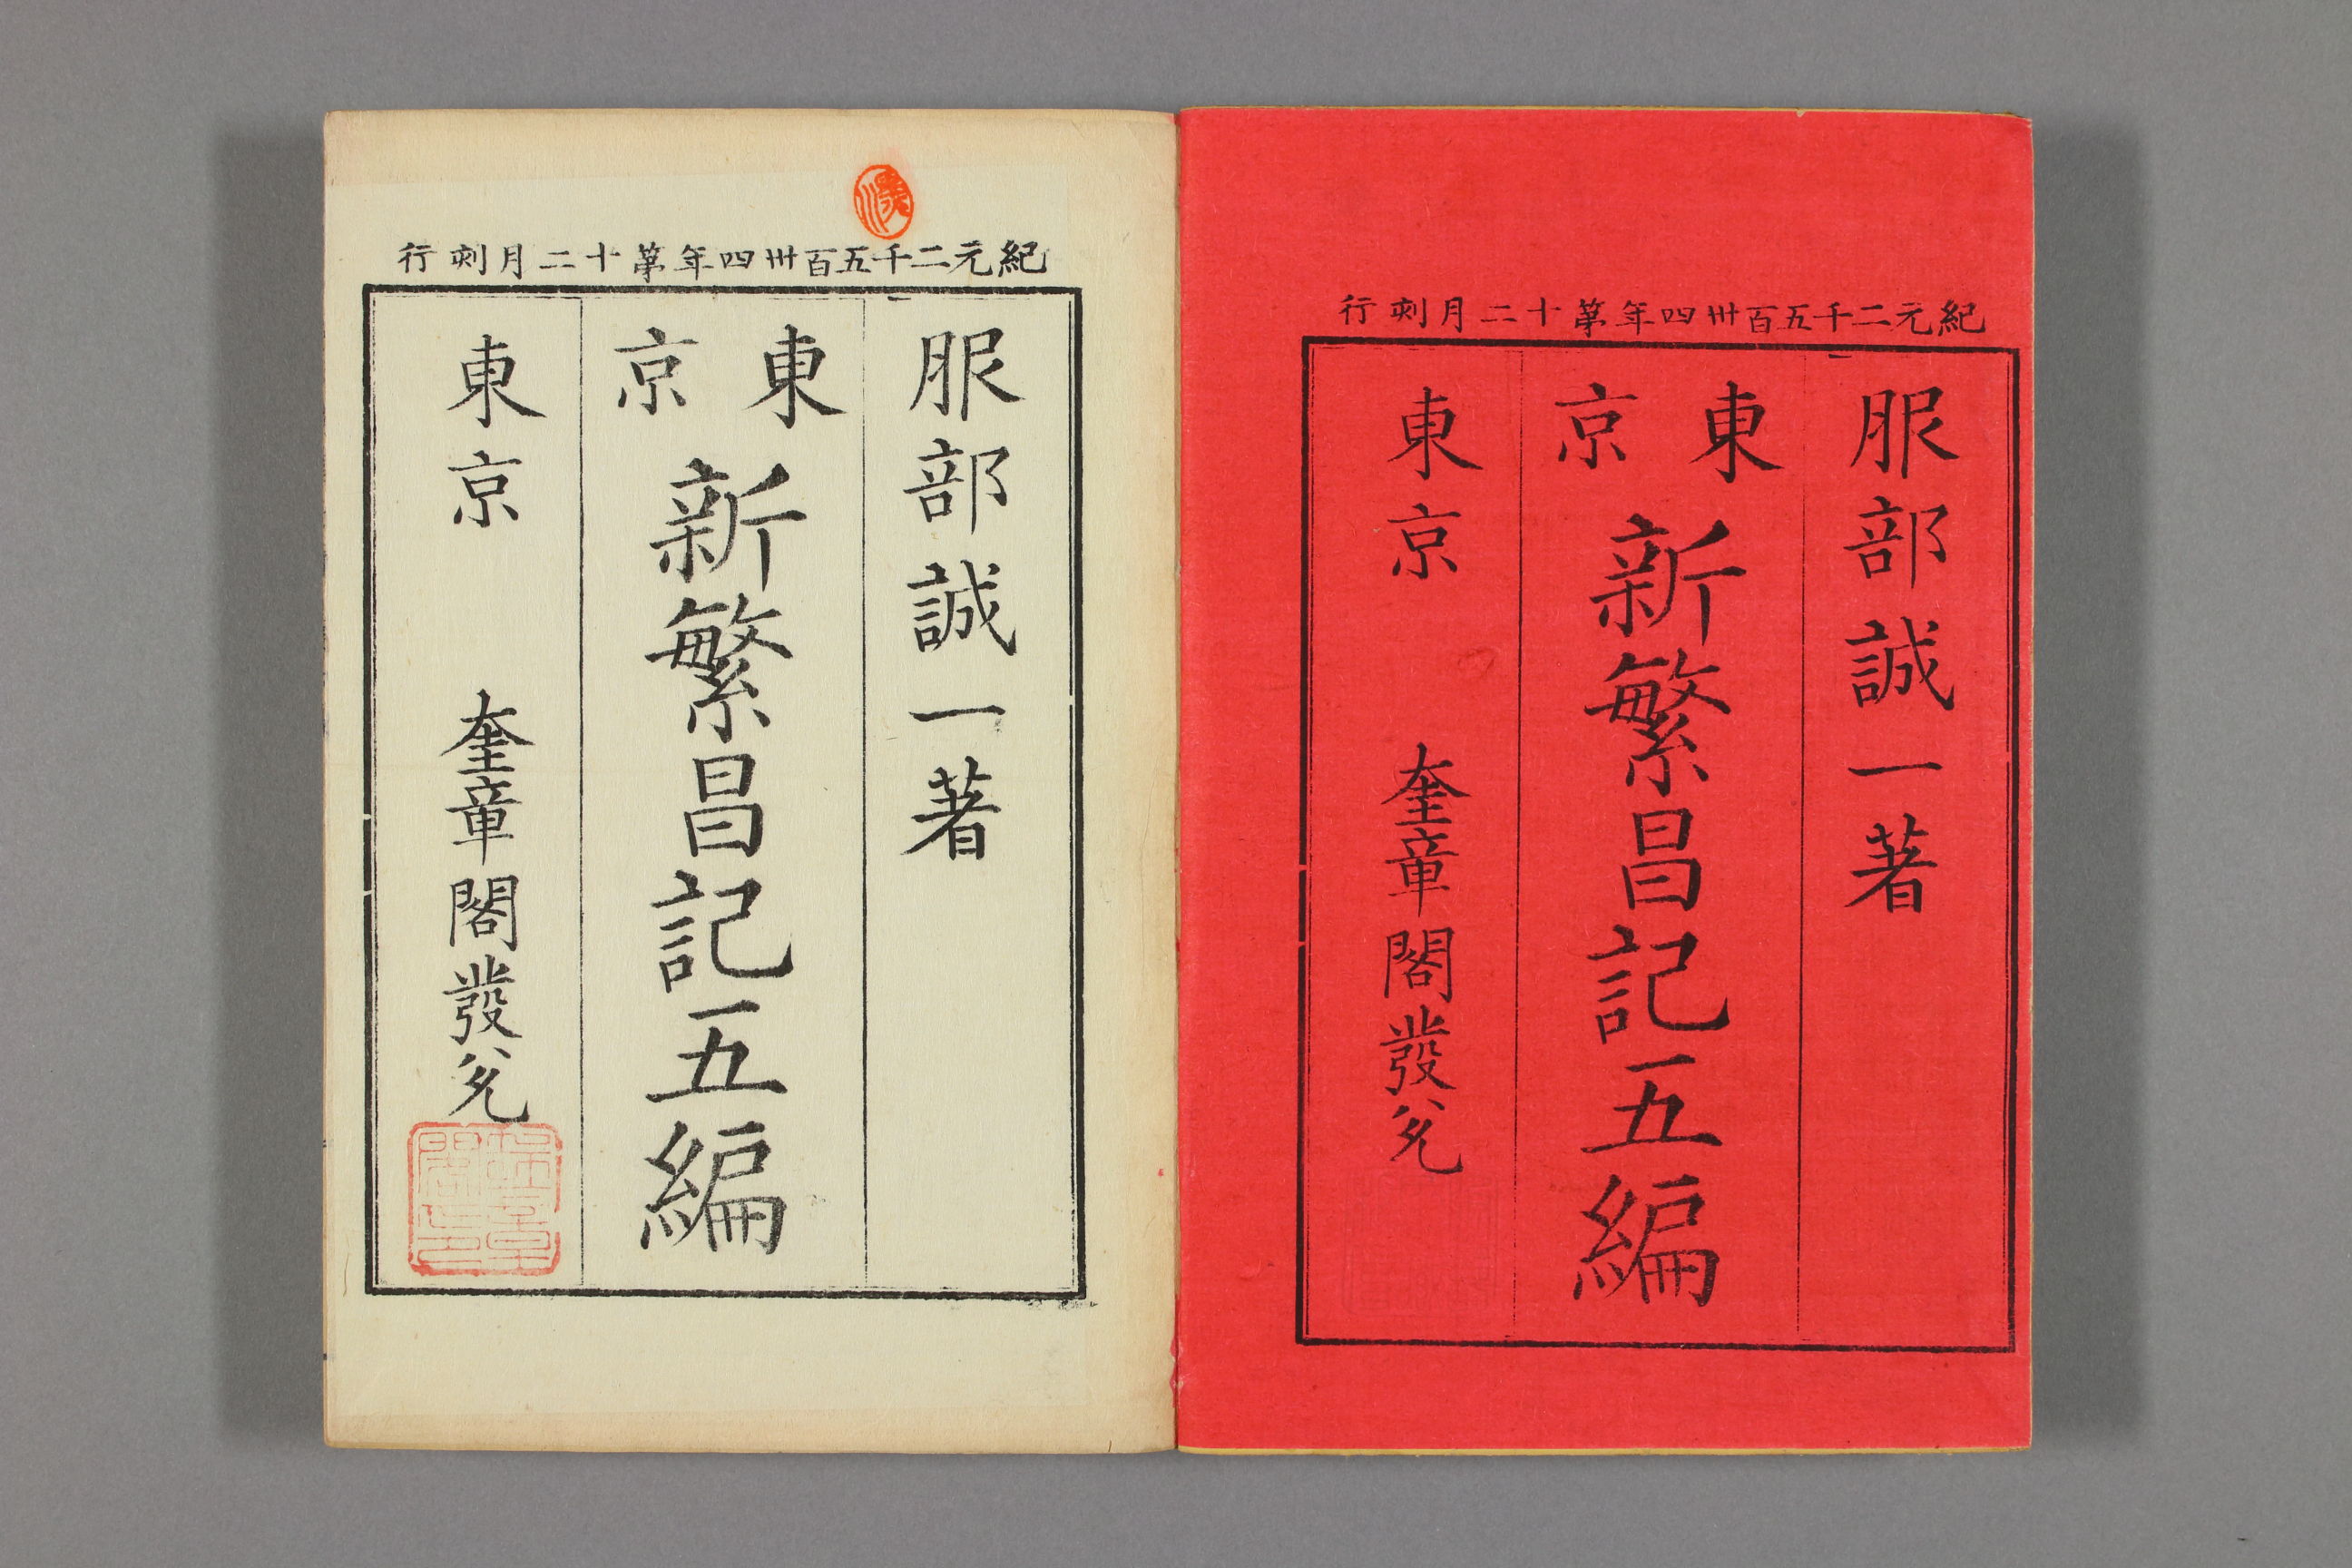 紀元二千五百卅四年第十二月刻行
服部誠一著
東京
新繁昌記五編
東京 奎章閣發兊
紀元二千五百卅四年第十二月刻行
服部誠一著
東京
新繁昌記五編
東京 奎章閣發兊